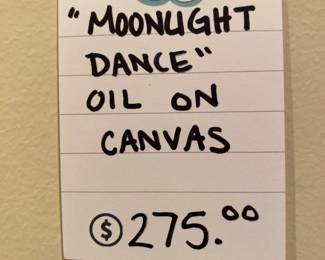 "MOONLIGHT
DANCE"
OIL ON
CANVAS
$275.00